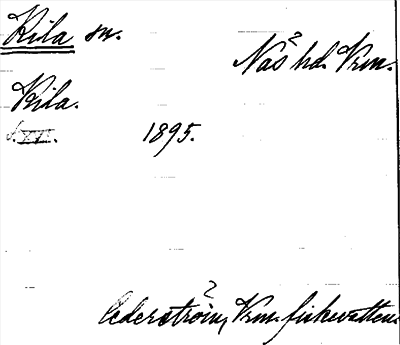 Kila sn.
Näs hd. Vrm.
Kila.
1895.
Cederström, Vrm. fiskevatten